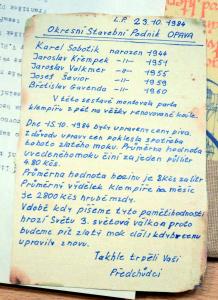 L.P. 23.10.1984
Okresní Stavební Podnik OPAVA
Karel Sobotik narozen 1944
Jaroslav Křempek -„- 1951
Jaroslav Valkmer -„- 1955
Josef Savior -„- 1959
Břetislav Gavenda -„- 1960
V této sestavě montovala parta
klempířů plech na věžky renovované kostel
Dne 15.10.1984 byly upraveny ceny piva.
Z důvodu úpravy cen poklesla spotřeba
tohoto zlatého moku. Průměrná hodnota
uvedeného moku činí za jeden půlitr
4.80 kčs.
Průměrná hodnota hodiny je 8 kčs za litr
Průměrný výdělek klempíře za měsíc
je 2800 kčs hrubé mzdy.
V době kdy píšeme tyto pamětihodnosti
hrozí Světu 3. světová válka proto
budeme pít zlatý mok dál, i kdyby cenu
upravily znovu.
Takhle trpěli Vaši
Předchůdci